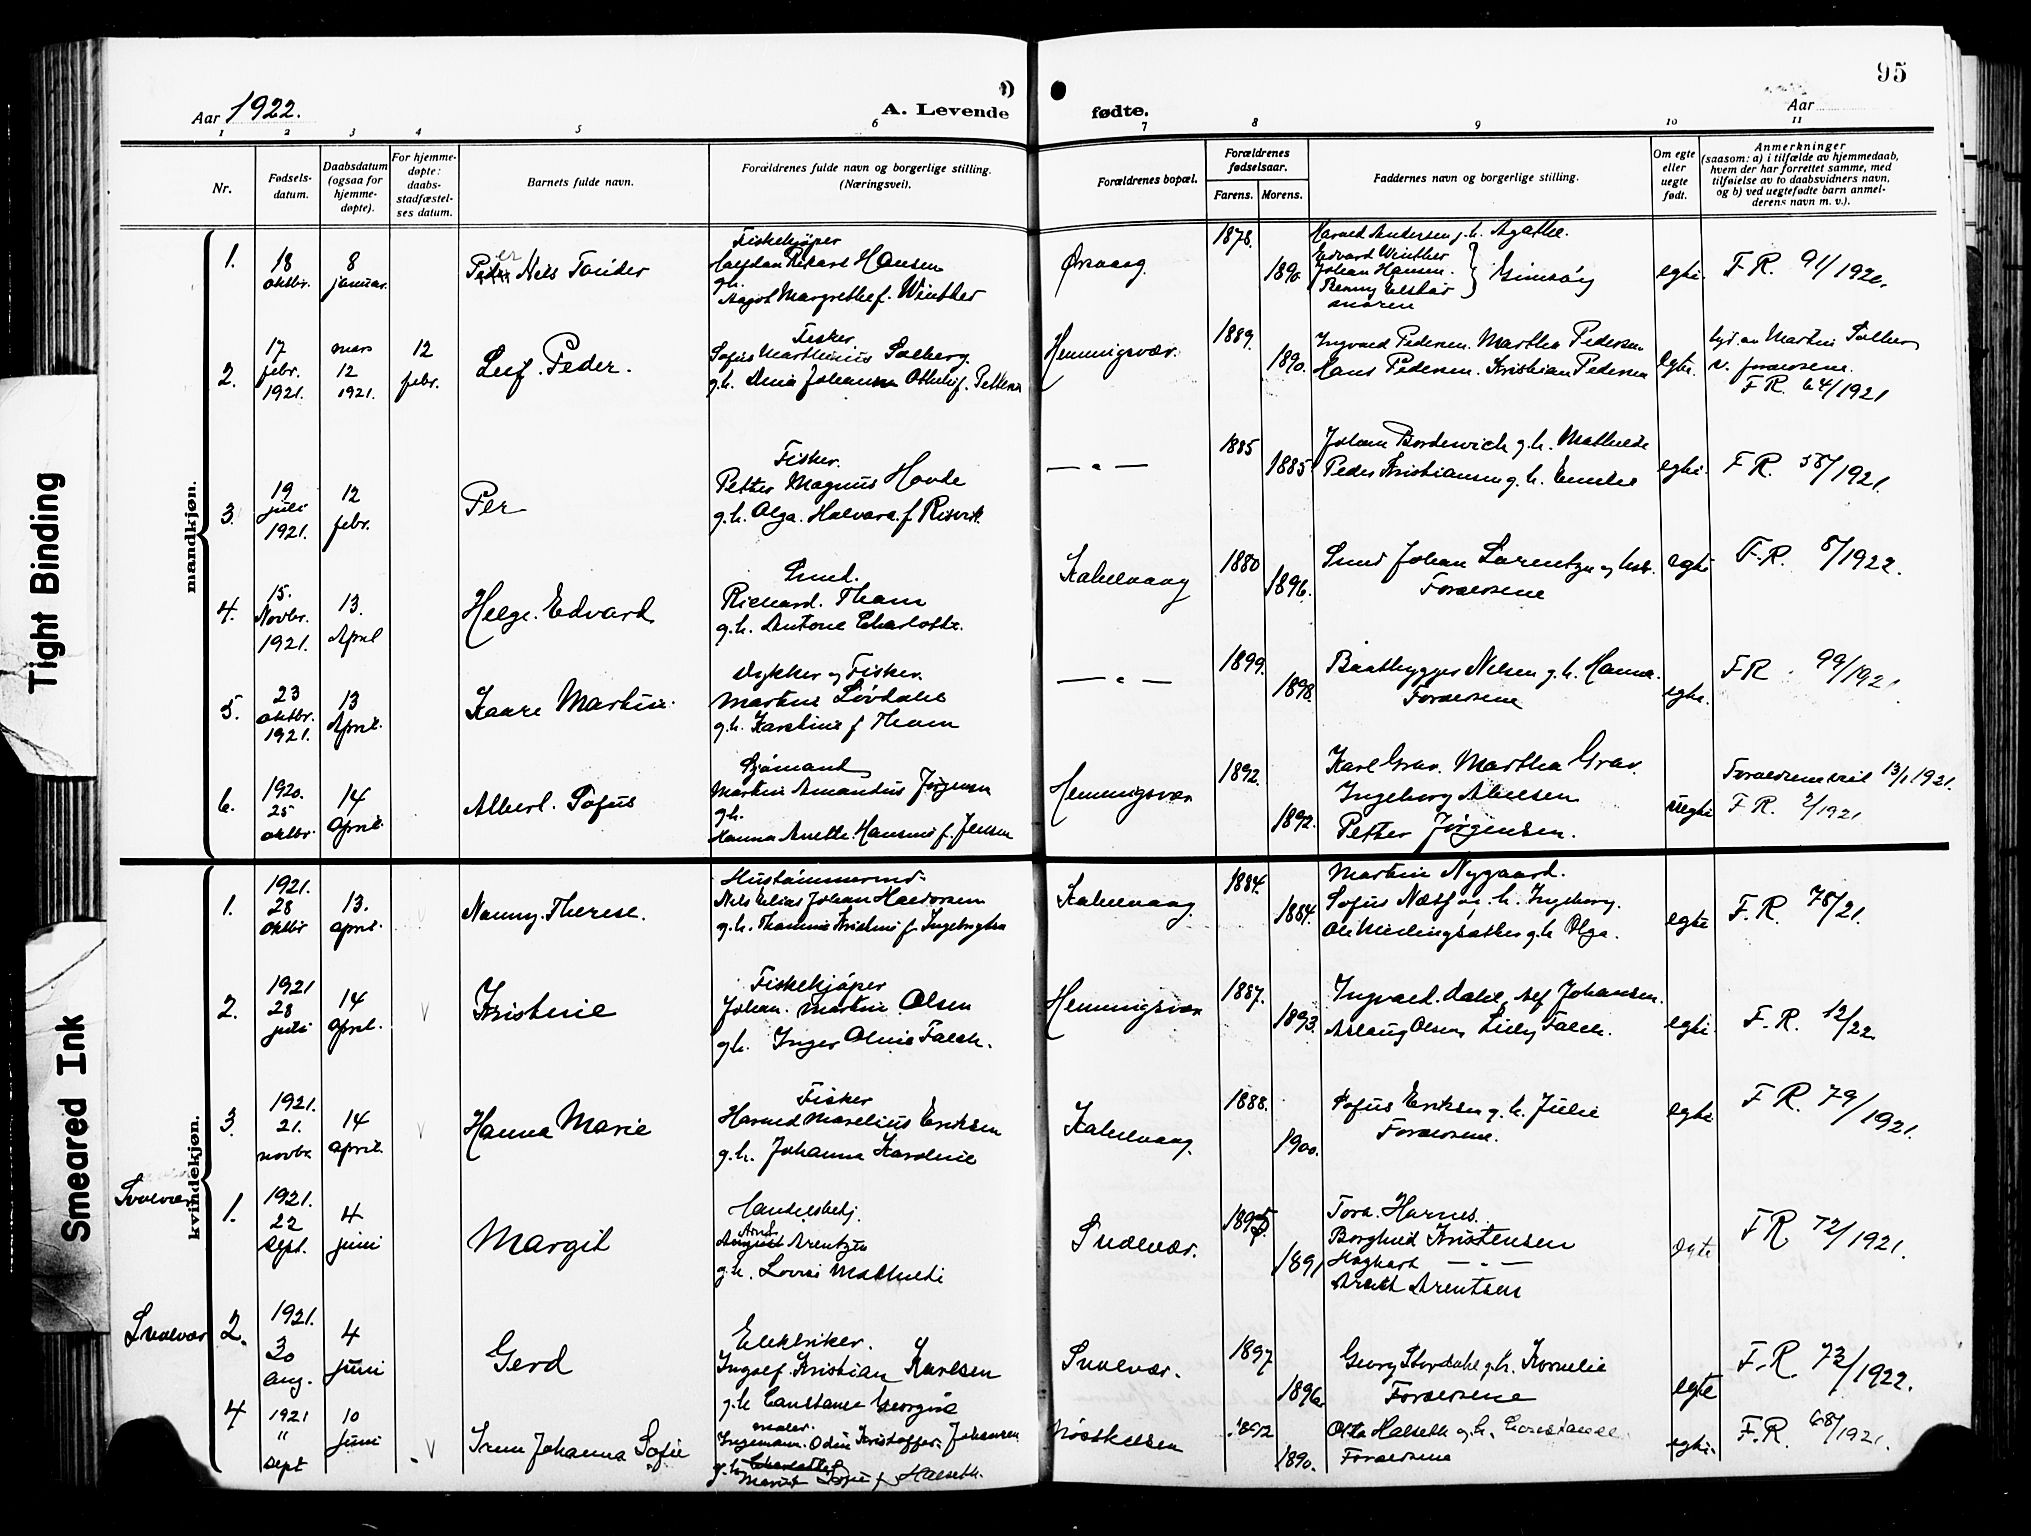 95
Aar 1922.
A. Levende
fødte.
Aar
1 2 3 4 5 6 7 8 9 10 11
Nr.
Fødsels-
datum.
Daabsdatum
(ogsaa for
hjemme-
døpte).
For hjemme-
døpte:
daabs-
stadfæstel-
ses datum.
Barnets fulde navn.
Forældrenes fulde navn og borgerlige stilling.
(Næringsvei).
Forældrenes bopæl.
Forældrenes
fødselsaar.
Farens. Morens.
Faddernes navn og borgerlige stilling.
Om egte
eller
uegte
født.
Anmerkninger
(saasom: a) i tilfælde av hjemmedaab,
hvem der har forrettet samme, med
tilføielse av to daabsvidners navn,
og b) ved uegtefødte barn anmel-
derens navn m. v.).
mandkjøn.
1.
18
oktbr.
8
januar.
Nils Tonder
Fiskekjøper
Halfdan Rikard Hansen
gh.
Margrethe f. Winther
Ørsvaag
1878.
1890.
Harald Andersen g. h. Agathe.
Edvard Winther
Johan Hansen.
Gimsøy
moren
egte
F. R. 91/1920.
2.
17
febr.
1921.
mars
12
1921.
12
febr.
Leif. Peder.
Fisker.
Sofus Marthinius Solberg.
g.h.
Henningsvær.
1889.
1890.
Ingvald Pedersen. Martha Pedersen
Hans Pedersen. Kristian Pedersen
egte.
F. R. 64/1921
3.
19
juli
1921.
12
febr.
Per
Fisker.
Petter Magnus Hovde
g.h. Olga. Halvara. f. Risvik
— " —
1885
1885
Johan Bordewich g. h. Mathilde
Peder Kristiansen g. h. Emilie
egte.
F. R. 58/1921.
4.
15.
Novbr.
1921.
13.
April
Helge. Edvard
Smed.
Richard. Tham
g.h. Antone Charlotte.
Kabelvaag
1880
1896.
Smed Johan Lorentzen og hust.
Forældrene
egte
F. R. 8/1922.
5.
23
oktbr.
1921.
13
April.
Kaare Martin.
Dykker og Fisker.
Martin Lövdahl
g.h. Karoline f Tham
— " —
1899.
1898.
Baatbygger Nilsen g. h. Hanna.
Forældrene
egte.
F R. 99/1921.
6.
1920.
25
oktbr.
14
april.
Albert. Sofus
Sjömand
Martin Amandus Jörgensen
g.h.
Hanna Anette. Hansine f. Jensen
Henningsvær
1892.
1892.
Karl Grav. Martha Grav.
Ingeborg Abelsen
Petter Jörgensen.
uegte
Forældrene viet 13/1 1921.
F R. 2/1921
kvindekjøn.
1.
1921.
28
oktbr
13.
april.
Nanny. Therese.
Hustömmermd.
Nils Elias Johan Haldorsen
g.h. Thomine Kristine f Ingebrigtsen
Kabelvaag
1884.
1884.
Martin Nygaard.
Sofus Næss og h. Ingeborg.
g.h Olga.
egte
F. R. 78/21.
2.
1921
28
juli
14
april.
v
Kristine
Fiskekjöper
Johan. Martin Olsen
g h. Inger Oline Falch.
Henningsvær
1887.
1893.
Ingvald. Dahl, Alf Johansen.
Aslaug Olsen, Lilly Falch.
egte.
F. R. 12/22
3.
1921.
21.
novbr
14
april.
v
Hanna Marie
Fisker
Harald Marelius Eriksen
g.h. Johanna Karoline
Kabelvaag.
1888.
1900.
Sofus Eriksen g. h. Julie
Forældrene.
egte
F R. 79/1921.
Svolvær
1.
1921.
22
sept.
4
juni
Margit
Handelsbetj.
August Arentzen
g.h. Lovise Mathilde
Svolvær.
1895.
1891
Tora. Harnes.
Borghild Kristensen
— " —
Arentsen
egte
F R 72/1921.
Svolvær
2.
1921.
30
aug.
4
juni
Gerd
Elektriker.
Ingolf. Kristian Karlsen
g.h Constance Georgine
Svolvær.
1897
1896.
Georg Stordahl g. h. Kornelie
Forældrene
egte
F. R 73/1922.
4
1921
"
sept
10
juni
v
Irene Johanna Sofie
maler.
Ingemann. Odin Kristoffer. Johansen
g.h.
f Halseth.
1892
1890.
Otto Halseth og h. Constance
Forældrene
egte.
F. R. 68/1921.
Tight Binding
Smeared Ink